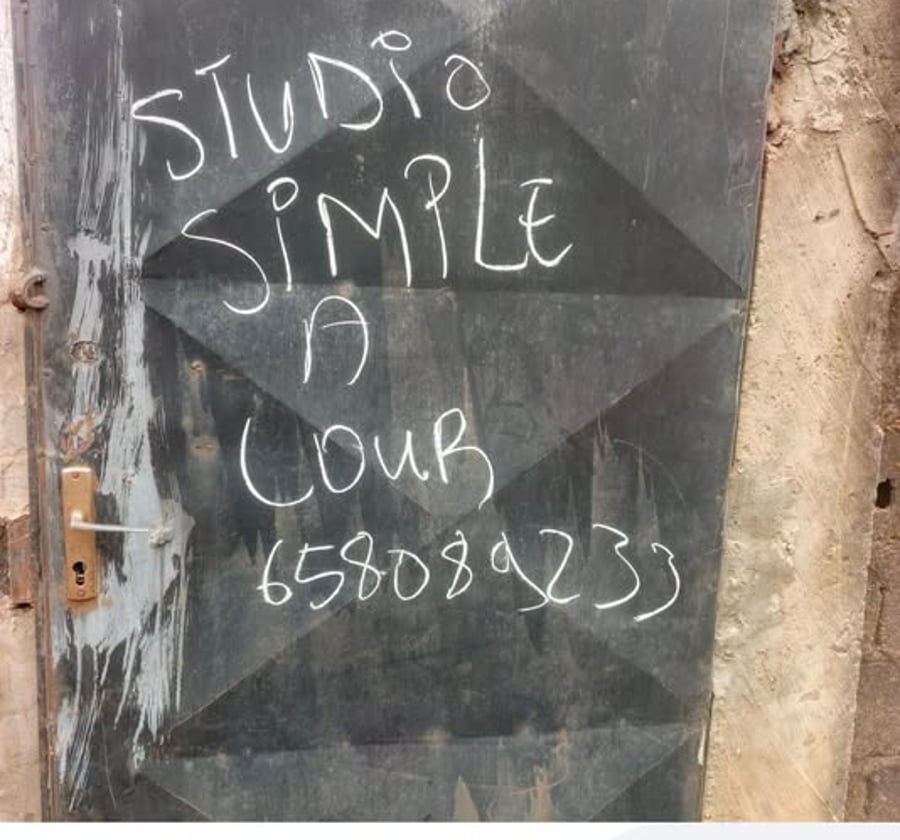 STUDIO
SIMPLE
A
LOUER
658089233